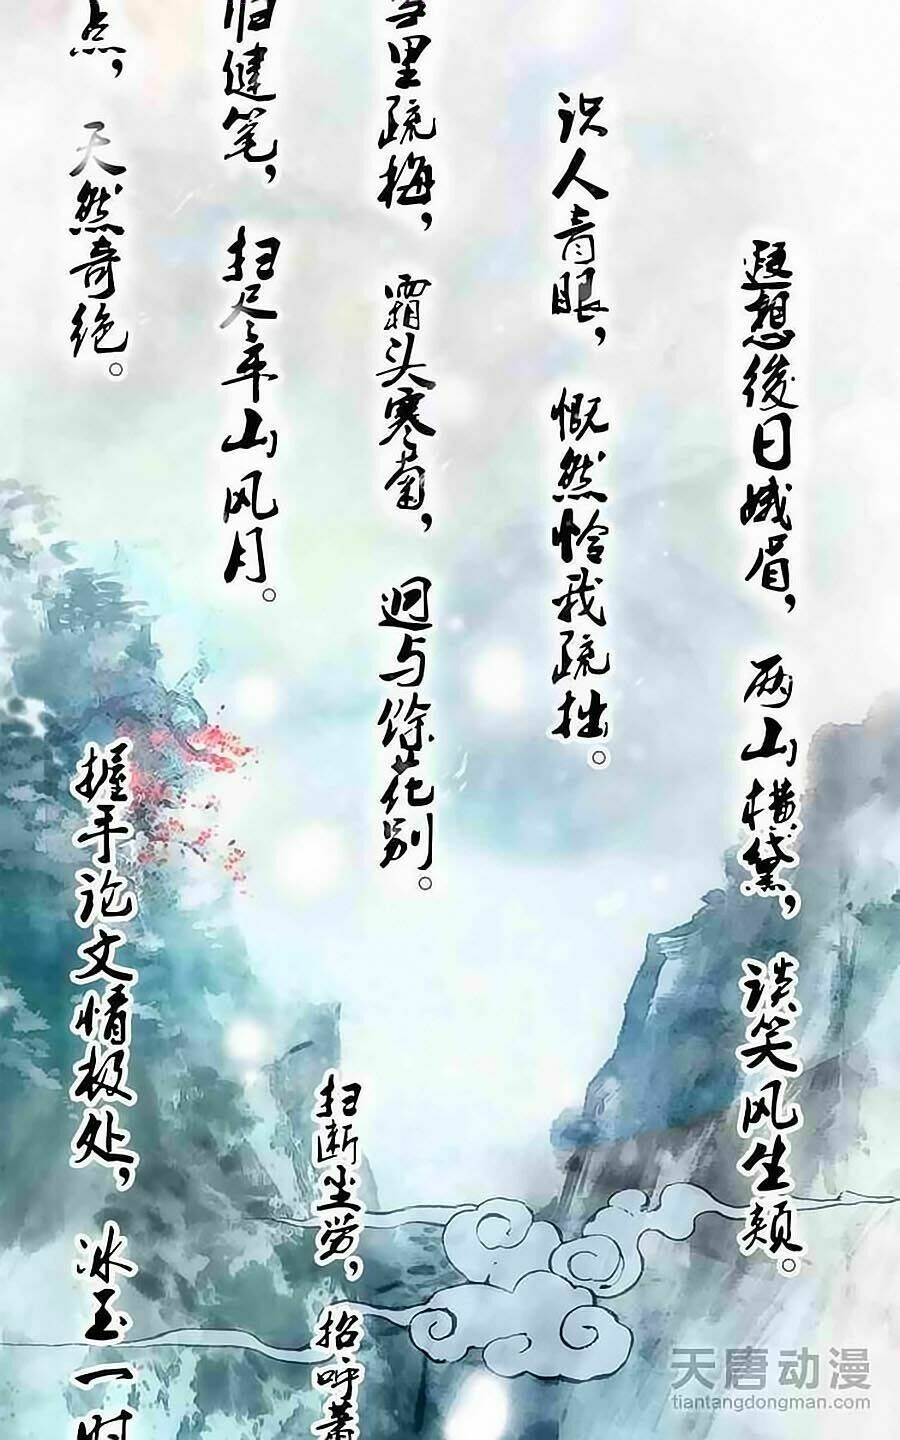 遐想後日娥眉，两山横黛，谈笑风生颊。
识人青眼，慨然怜我疏拙。
雪里疏梅，霜头寒菊，迥与馀花别。
归健笔，扫尽平山风月。
点，天然奇绝。
握手论文情极处，冰玉一时
扫断尘劳，招呼萧
天唐动漫
tiantangdongman.com